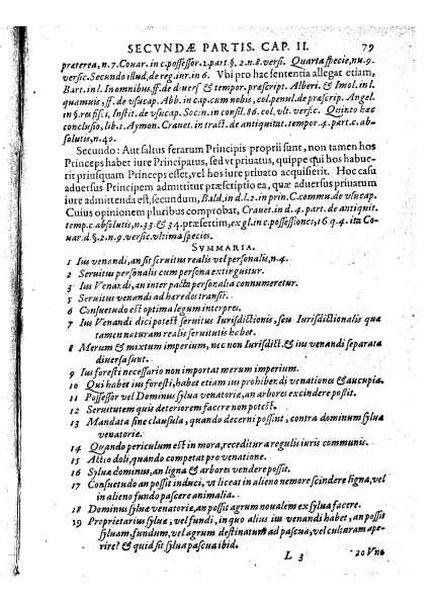 SECVNDÆ PARTIS. CAP. II. 79
præterea, n.7. Couar. in c. possessor. 2. part. §. 2. n. 8. versi. Quarta specie, nu. 9.
versic. Secundo illud, de reg. iur. in 6. Vbi pro hac sententia allegat etiam,
Bart. in l. In omnibus. ff. de diuers. & tempor. præscript. Alberi. & Imol. in l.
quamuis, ff. de vsucap. Abb. in cap. cum nobis, col. penul. de præscrip. Angel.
in §. res fisci, Instit. de vsucap. Soc. n. in consil. 86. col. vlt. versic. Quinto hæc
conclusio, lib. 1. Aymon. Crauet. in tract. de antiquitat. tempor. 4. part. c. ab-
solutis, n. 40.
Secundo: Aut saltus ferarum Principis proprii sunt, non tamen hos
Princeps habet iure Principatus, sed vt priuatus, quippe qui hos habue-
rit priusquam Princeps esset, vel hos iure priuato acquisierit. Hoc casu
aduersus Principem admittitur præscriptio ea, quæ aduersus priuatum
iure admittenda est, secundum, Bald. in d. l. 2. in prin. C. commu. de vsucap.
Cuius opinionem pluribus comprobat, Crauet. in d. 4. part. de antiquit.
temp. c. absolutis, n. 33. & 34. præsertim, ex gl. in c. possessiones, 16. q. 4. ita Co-
uar. d. §. 2. n. 9. versic. vltima species.
SVMMARIA.
1 Ius venandi, an sit seruitus realis vel personalis, n. 4.
2 Seruitus personalis cum persona extinguitur.
3 Ius Venandi, an inter pacta personalia connumeretur.
5 Seruitus venandi ad hæredes transit.
6 Consuetudo est optima legum interpres.
7 Ius Venandi dici potest seruitus Iurisdictionis, seu Iurisdictionalis quæ
tamen naturam realis seruitutis habet.
8 Merum & mixtum imperium, nec non Iurisdict. & ius venandi separata
diuersa sunt.
9 Ius foresti necessario non importat merum imperium.
10 Qui habet ius foresti, habet etiam ius prohibendi venationes & aucupia.
11 Possessor vel Dominus syluæ venatoriæ, an arbores excindere possit.
12 Seruitutem quis deteriorem facere non potest.
13 Mandata sine clausula, quando decerni possint, contra dominum syluæ
venatoriæ.
14 Quando periculum est in mora, receditur a regulis iuris communis.
15 Actio doli, quando competat pro venatione.
16 Syluæ dominus, an ligna & arbores vendere possit.
17 Consuetudo an possit induci, vt liceat in alieno nemore scindere ligna, vel
in alieno fundo pascere animalia.
18 Dominus syluæ venatoriæ, an possit agrum noualem ex sylua facere.
19 Proprietarius syluæ, vel fundi, in quo alius ius venandi habet, an possit
syluam, fundum, vel agrum destinatum ad pascua, vel culturam ape-
rire? & quid sit sylua pascua ibid.
L 3 20 Vnu